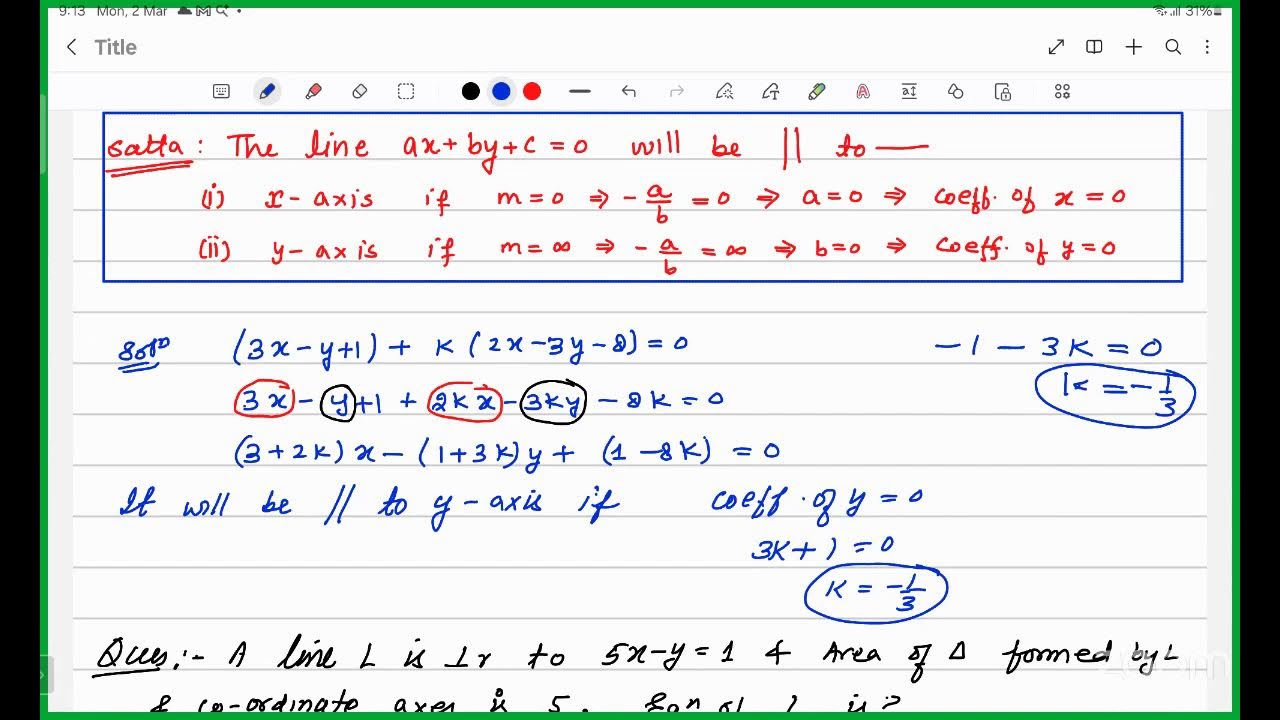 9:13 Mon, 2 Mar
31%
Title
Satta : The line ax + by + c = 0 will be || to —
(i) x-axis if m = 0 ⇒ -a/b = 0 ⇒ a = 0 ⇒ coeff. of x = 0
(ii) y-axis if m = ∞ ⇒ -a/b = ∞ ⇒ b = 0 ⇒ coeff. of y = 0
Solⁿ (3x - y + 1) + K (2x - 3y - 8) = 0
-1 - 3K = 0
3x - y + 1 + 2Kx - 3Ky - 8K = 0
K = -1/3
(3 + 2K) x - (1 + 3K) y + (1 - 8K) = 0
It will be // to y-axis if coeff. of y = 0
3K + 1 = 0
K = -1/3
Ques:- A line L is ⊥r to 5x - y = 1 & Area of Δ formed by L
& co-ordinate axes is 5. Eqn of L is?